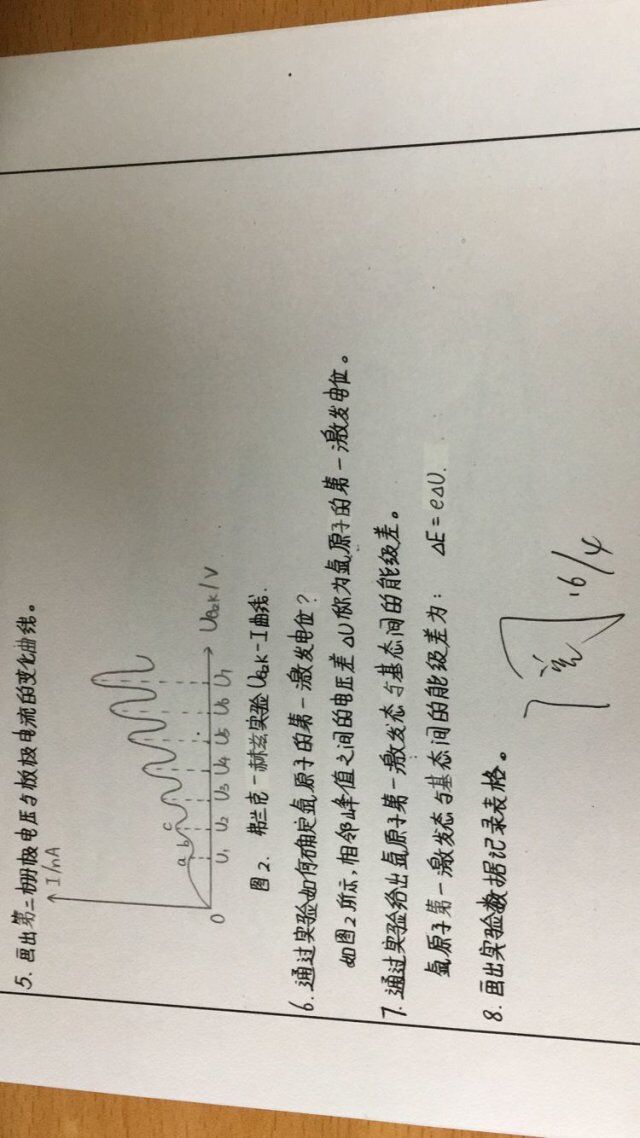 5. 画出第二栅极电压与板极电流的变化曲线。
I/nA
a b c
0 U₁ U₂ U₃ U₄ U₅ U₆ U₇ U_G₂K/V
图2. 弗兰克-赫兹实验 U_G₂K-I曲线.
6. 通过实验如何确定氩原子的第一激发电位?
如图2所示,相邻峰值之间的电压差 ΔU 称为氩原子的第一激发电位。
7. 通过实验给出氩原子第一激发态与基态间的能级差。
氩原子第一激发态与基态间的能级差为: ΔE=eΔU.
8. 画出实验数据记录表格。
阅
16/4